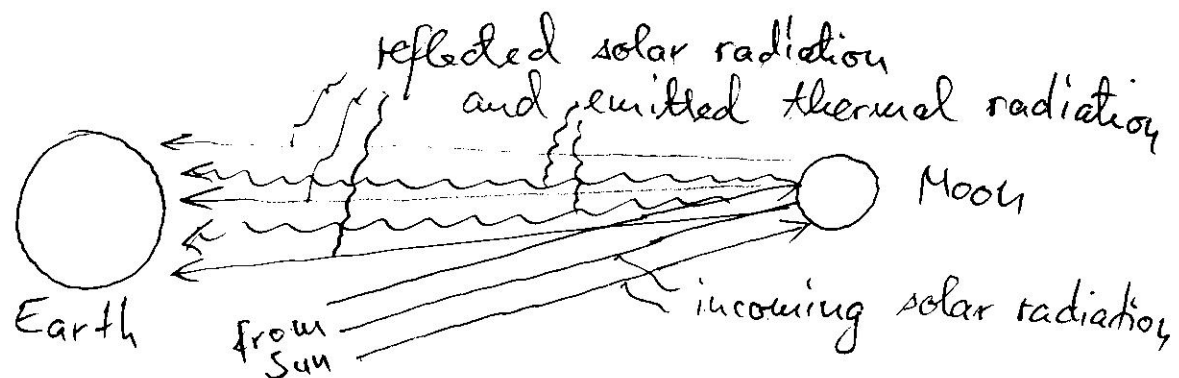 reflected solar radiation
and emitted thermal radiation
Moon
Earth
from
Sun
incoming solar radiation